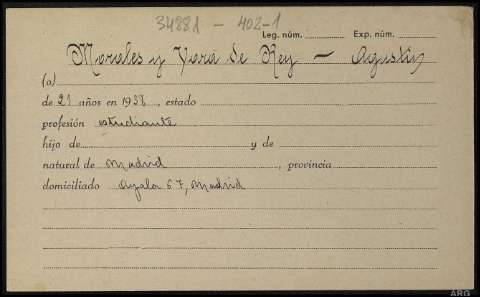 34881 - 402-1
Leg. núm. Exp. núm.
Morales y Vara de Rey — Agustín
(a)
de 21 años en 1938, estado
profesión estudiante
hijo de y de
natural de Madrid, provincia
domiciliado Ayala 67, Madrid
ARG